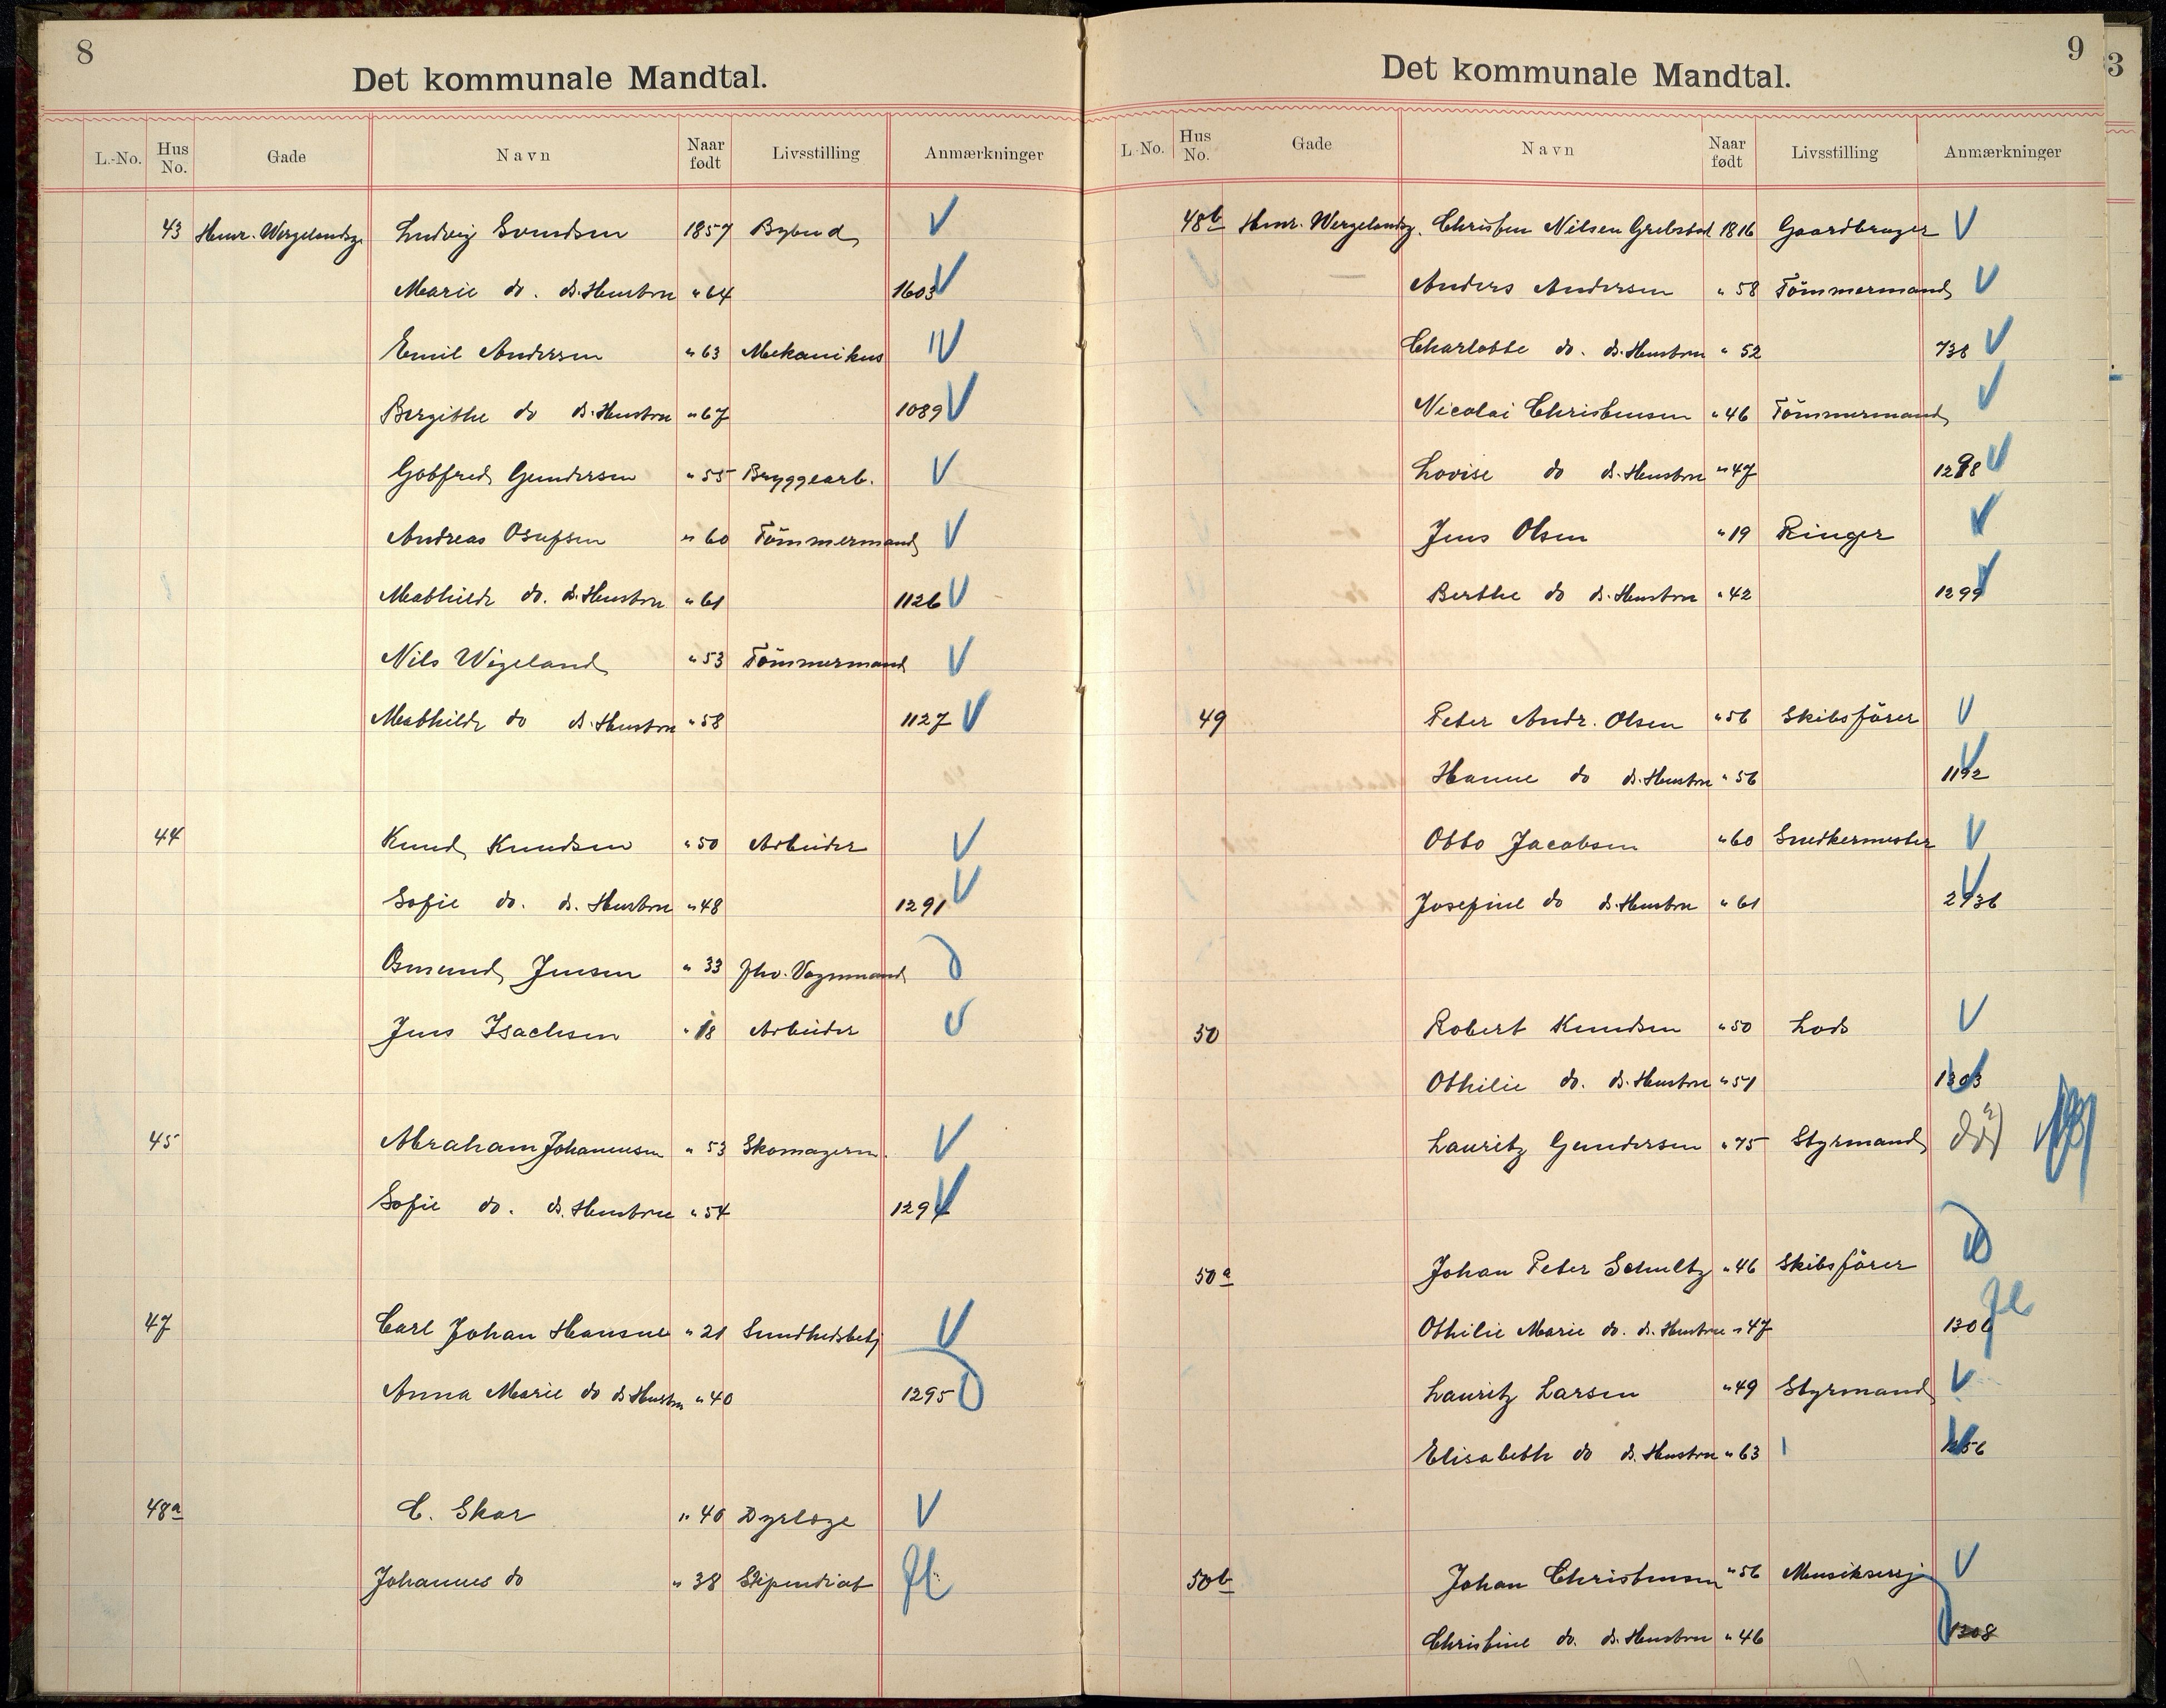 8
Det kommunale Mandtal.
L.-No. Hus No. Gade Navn Naar født Livsstilling Anmærkninger
43 Henr. Wergelandsg. Ludvig Svendsen 1857 Bybud V
Marie do. d. Hustru " 64 1603 V
Emil Andersen " 63 Mekanikus V
Bergithe do d. Hustru " 67 1089 V
Gotfred Gundersen " 55 Bryggearb. V
Andreas Osufsen " 60 Tømmermand V
Mathilde do. d. Hustru " 61 1126 V
Nils Wigeland " 53 Tømmermand V
Mathilde do d. Hustru " 58 1127 V
44 Knud Knudsen " 50 Arbeider V
Sofie do. d. Hustru " 48 1291 V
Osmund Jensen " 33 fhv. Vognmand
Jens Isachsen " 18 Arbeider V
45 Abraham Johannesen " 53 Skomagerm. V
Sofie do. d. Hustru " 54 1294 V
47 Carl Johan Hansen " 21 Sundhedsbetj V
Anna Marie do d Hustru " 40 1295
48a C. Skar " 40 Dyrlæge V
Johannes do " 38 Stipendiat fl
9
Det kommunale Mandtal.
L.-No. Hus No. Gade Navn Naar født Livsstilling Anmærkninger
48b Henr. Wergelandsg. Christen Nilsen Grebstad 1816 Gaardbruger V
Anders Andersen " 58 Tømmermand V
Charlotte do. d. Hustru " 52 738 V
Nicolai Christensen " 46 Tømmermand V
Lovise do d. Hustru " 47 1298 V
Jens Olsen " 19 Ringer V
Berthe do d. Hustru " 42 1299 V
49 Peter Andr. Olsen " 56 Skibsfører V
Hanne do d. Hustru " 56 1192 V
Otto Jacobsen " 60 Snedkermester V
Josefine do d. Hustru " 61 V
50 Robert Knudsen " 50 Lods V
Othilie do. d. Hustru " 51 1303 V
Lauritz Gundersen " 75 Styrmand
50a Johan Peter Schultz " 46 Skibsfører
Othilie Marie do. d. Hustru " 47 fl
Lauritz Larsen " 49 Styrmand V
Elisabeth do d. Hustru " 63 V
50b Johan Christensen " 56 Musiksersj V
Christine do. d. Hustru " 46 1308
3